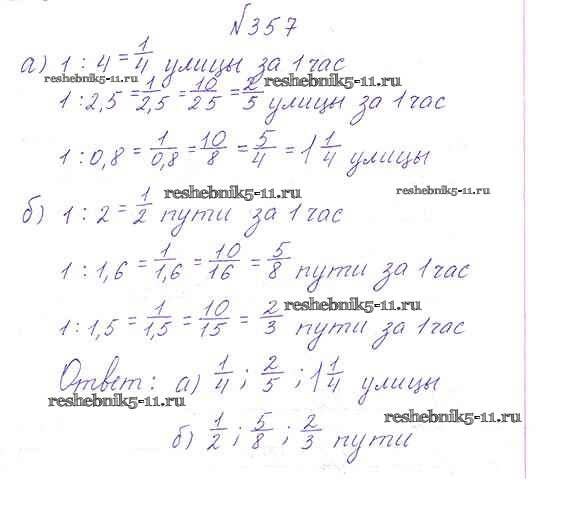 №357
а) 1 : 4 = 1/4 улицы за 1 час
reshebnik5-11.ru reshebnik5-11.ru
1 : 2,5 = 1/2,5 = 10/25 = 2/5 улицы за 1 час
1 : 0,8 = 1/0,8 = 10/8 = 5/4 = 1 1/4 улицы
reshebnik5-11.ru reshebnik5-11.ru
б) 1 : 2 = 1/2 пути за 1 час
1 : 1,6 = 1/1,6 = 10/16 = 5/8 пути за 1 час
reshebnik5-11.ru
1 : 1,5 = 1/1,5 = 10/15 = 2/3 пути за 1 час
Ответ: а) 1/4 ; 2/5 ; 1 1/4 улицы
reshebnik5-11.ru reshebnik5-11.ru
б) 1/2 ; 5/8 ; 2/3 пути